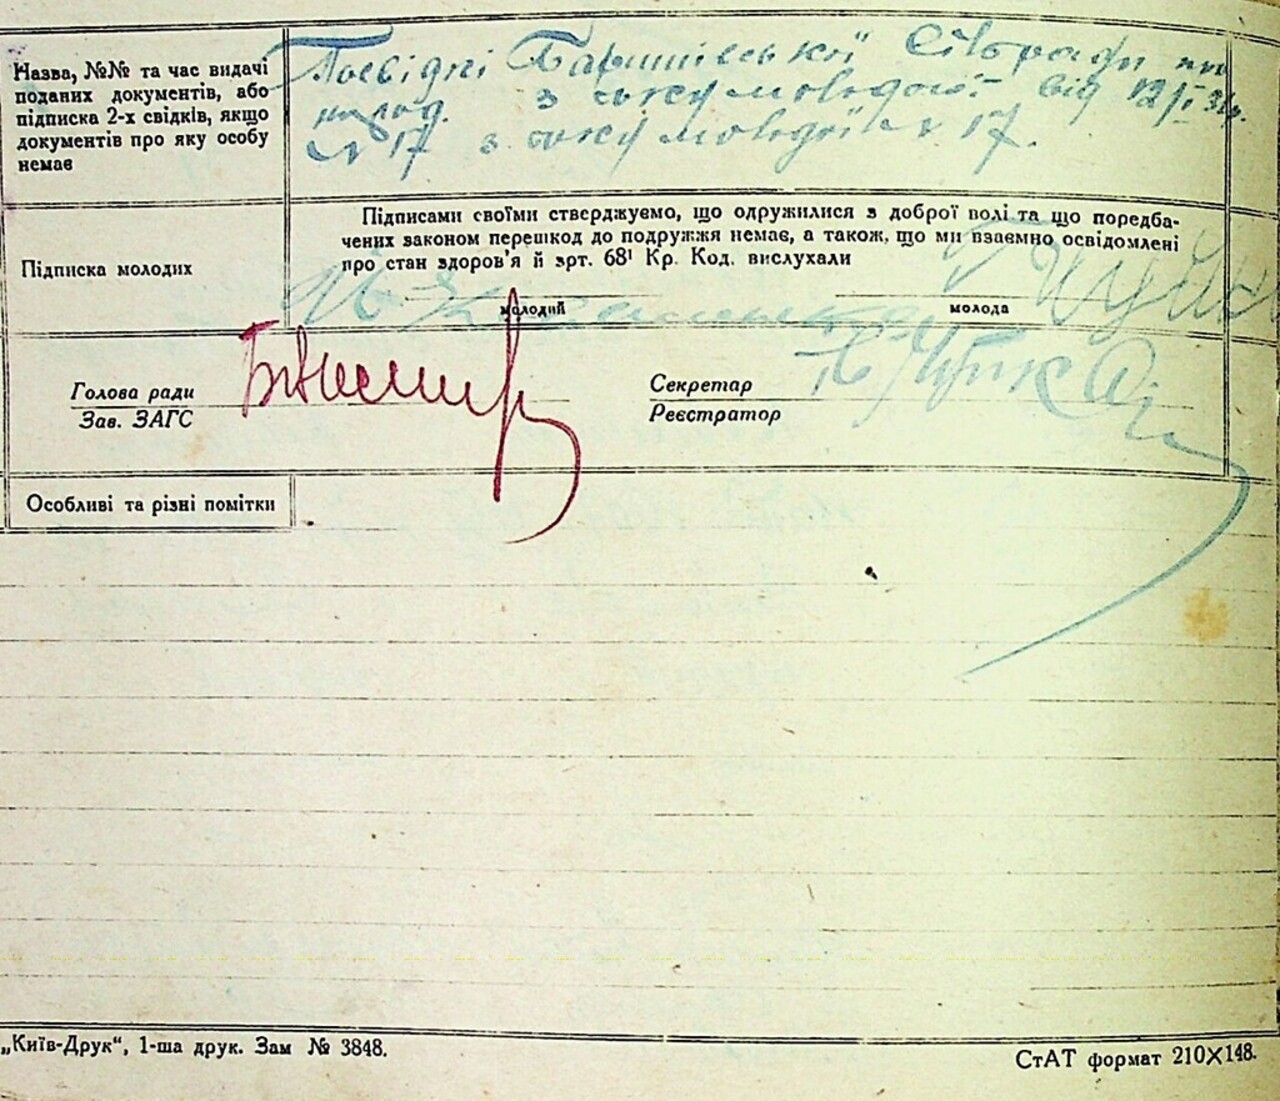 Назва, №№ та час видачі
поданих документів, або
підписка 2-х свідків, якщо
документів про яку особу
немає
Посвідкі Баришівської Сільради про
молод. з боку молодої від 12/I 31р.
№ 17 з боку молодої № 17.
Підписка молодих
Підписами своїми стверджуємо, що одружилися з доброї волі та що поредба-
чених законом перешкод до подружжя немає, а також, що ми взаємно освідомлені
про стан здоров'я й зрт. 68¹ Кр. Код. вислухали
молодий
молода
Голова ради
Зав. ЗАГС
Секретар
Реєстратор
Особливі та різні помітки
„Київ-Друк“, 1-ша друк. Зам № 3848.
СтАТ формат 210×148.